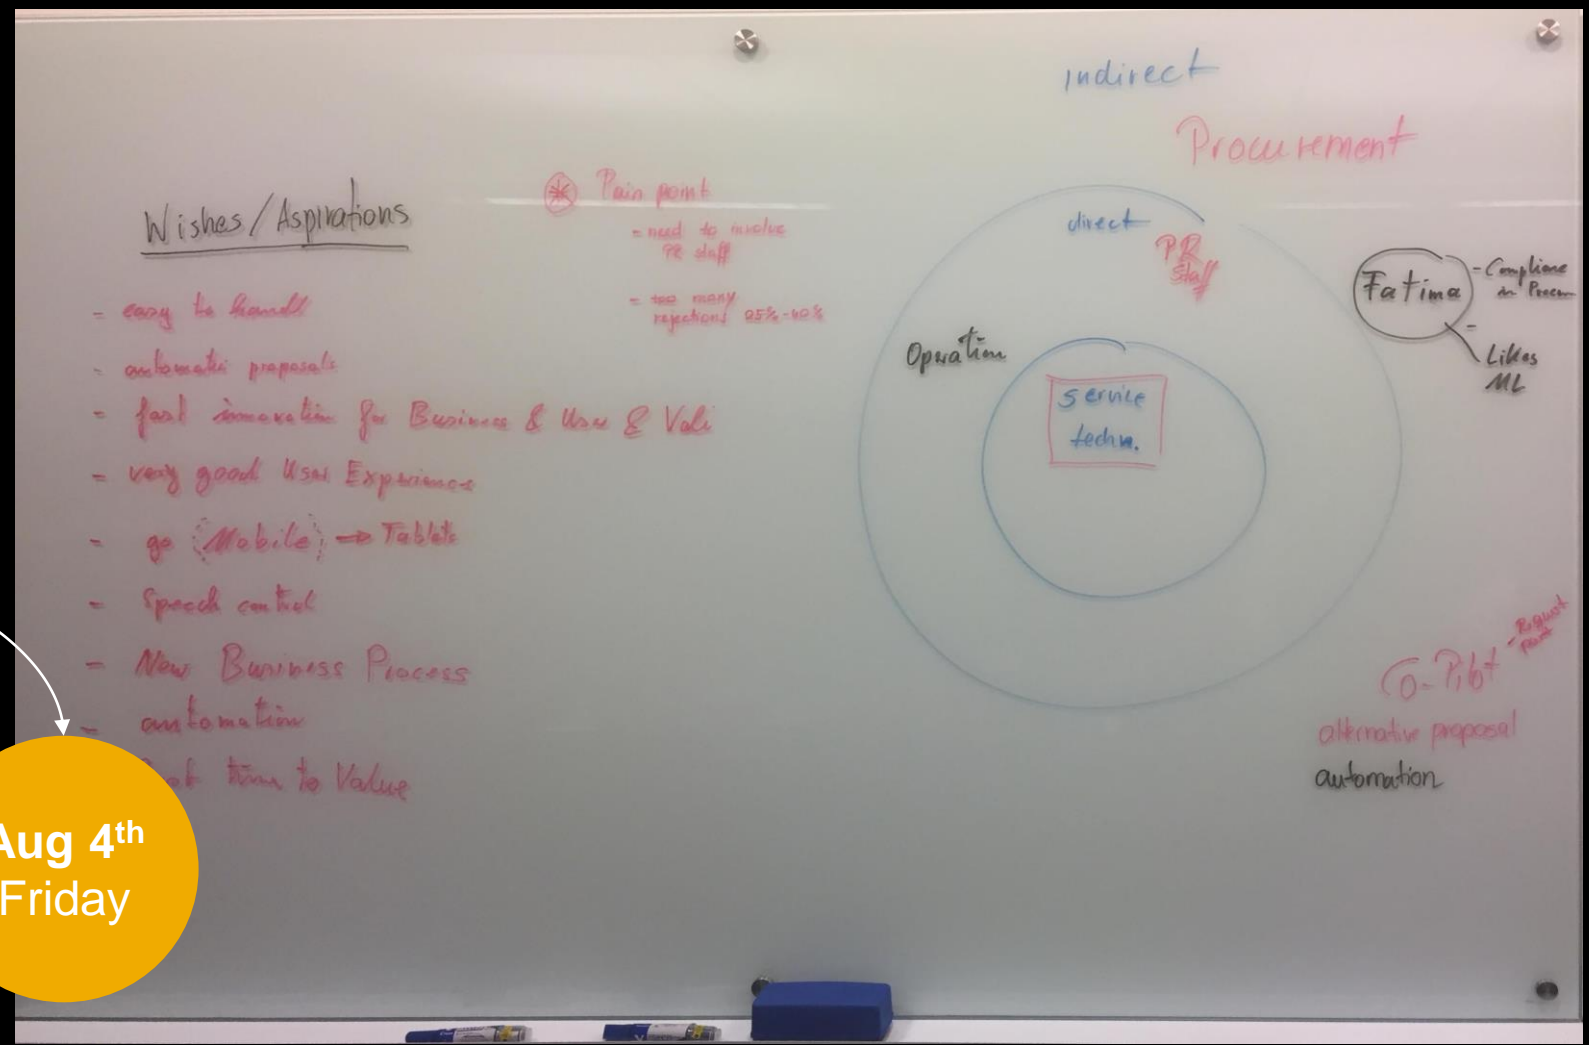 Wishes/Aspirations
- easy to handl
- automatic proposals
- fast innovation for Business & User &
- very good User Experience
- go (Mobile) → Tablets
- Speech control
- New Business Process
- automation
time to Value
Pain point
- need to involve
PR staff
- too many
rejections 25%-40%
Indirect
Procurement
direct
PR
staff
Operation
service
techn.
Fatima
- Compliance
in
-
Likes
ML
Co-Pilot
- Request
alternative proposal
automation
Aug 4th
Friday